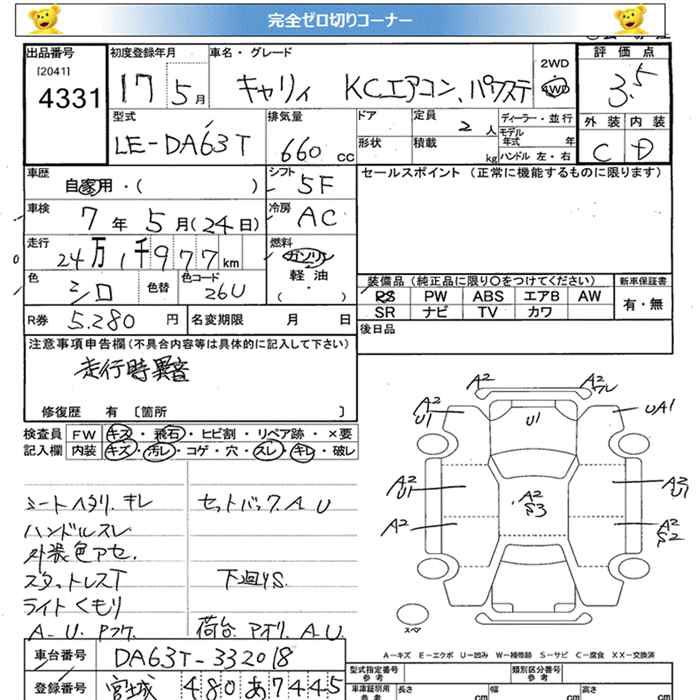 完全ゼロ切りコーナー
出品番号 初度登録年月 車名・グレード 2WD 評価点
[2041] 4331 17 5月 キャリィ KCエアコン、パワステ 4WD 3.5
型式 排気量 ドア 定員 ディーラー・並行 外装 内装
LE-DA63T 660cc 2人 モデル年式 年 C D
形状 積載 kg ハンドル 左・右
車歴 自家用・( ) シフト 5F セールスポイント (正常に機能するものに限ります)
車検 7年5月(24日) 冷房 AC
走行 24万1千977km 燃料 ガソリン
軽油
( ・ )
色 シロ 色替 色コード 26U
装備品 (純正品に限り○をつけてください) 新車保証書
PS PW ABS エアB AW 有・無
SR ナビ TV カワ
R券 5.280円 名変期限 月 日 後日品
注意事項申告欄(不具合内容等は具体的に記入して下さい)
走行時異音
修復歴 有 〔箇所 〕
検査員 FW キズ・飛石・ヒビ割・リペア跡・×要
記入欄 内装 キズ・汚レ・コゲ・穴・スレ・キレ・破レ
シートヘタリ、キレ セットバックA.U
ハンドルスレ
外装色アセ.
スタットレスT 下廻りS.
ライトくもり
A-U.Pフケ. 荷台.アオリ.A.U.
A2 A2
A2 U1 U1 UA1
A2 U1 A2 S3 A3 U1
A2 A2 S2
スペア
A-キズ E-エクボ U-凹み W-補修跡 S-サビ C-腐食 XX-交換済
車台番号 DA63T-332018 型式指定番号 類別区分番号
登録番号 宮城 480 あ7445 車庫証明用 参考 長さ cm 幅 cm 高さ cm